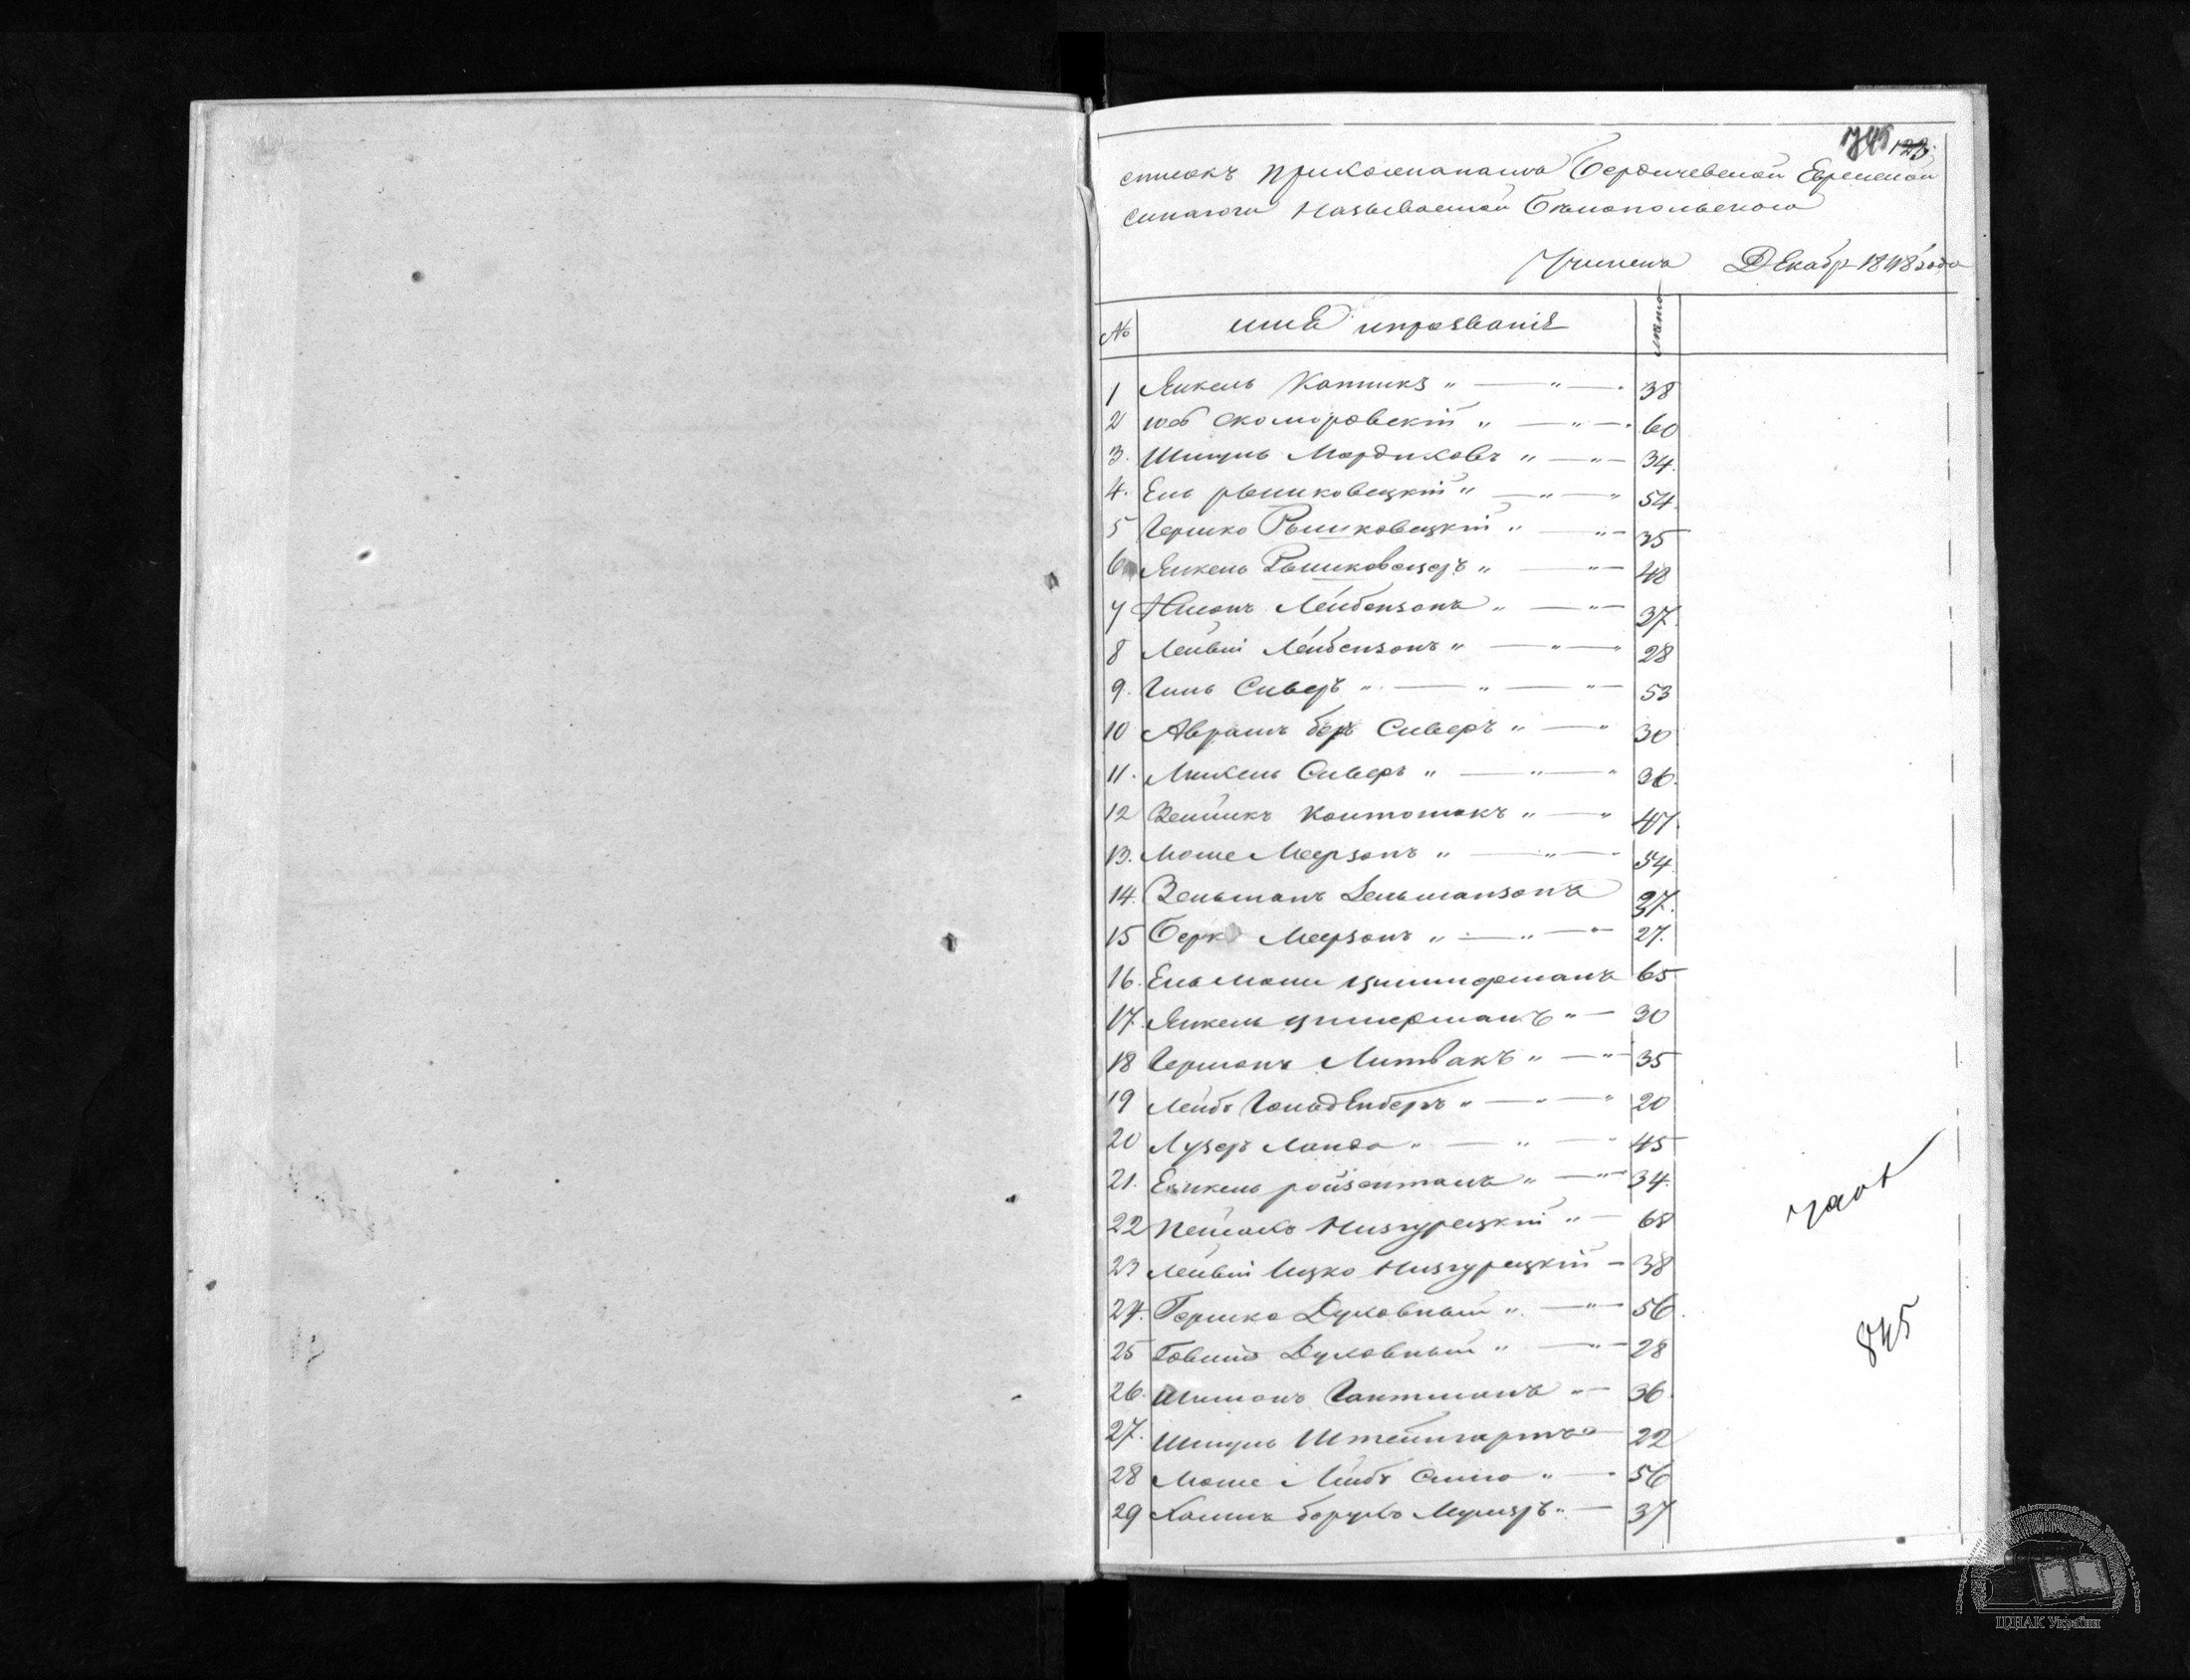 745 123
списокъ прихожанамъ Бердичевской Еврейской
синагоги называемой Бѣлопольского
Учинена Декабр 1848 года
№ имѣ ипрозваніе лѣта
1 Янкель Катникъ " — " — 38
2 юсъ Скоморовскій " — " — 60
3. Шмуль Мордиковъ " — " — 34.
4. Ель рышковецкій " — " — " 54.
5 Гершко Рышковецкій " — " — 35
6 Янкель Рышковецеръ " — " — 48
7 Нисонъ Лейбензонъ " — " — 37.
8 Лейви Лейбензонъ " — " — " 28
9. Гиль Сиверъ " — " — " — 53
10 Аврамъ беръ Сиверъ " — " 30
11. Михель Сиверъ " — " — " 36.
12 Зейликъ " — " 47.
13. Моше Меерзонъ " — " — 54
14. Зельманъ Зельманзонъ 37.
15 Берко Меерзонъ " — " — " 27.
16. Ель Моши Циммерманъ 65
17. Янкель цимерманъ " — 30
18 Германъ Литвакъ " — " 35
19 Лейбъ Гольденберъ " — " — " 20
20 Лузеръ Ландо " — " — " 45
21. ройзенманъ " — " 34.
22 Пейсахъ Низгурецкій " — 68
23 Лейви Ицко Низгурецкій — 38
24. Гершко Духовный " — " — 56.
25 Духовный " — " — 28
26. Шимонъ Гантманъ " — 36.
27. Шмуль Штейнгартъ — 22
28 Моше Лейбъ " — " 56
29 Хаимъ борухъ " — 37
845
ЦДІАК України